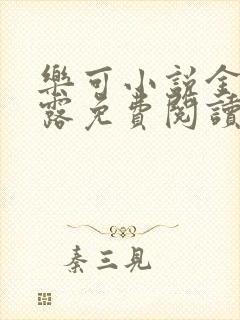 樂可小説全
露免費閱讀
秦三見